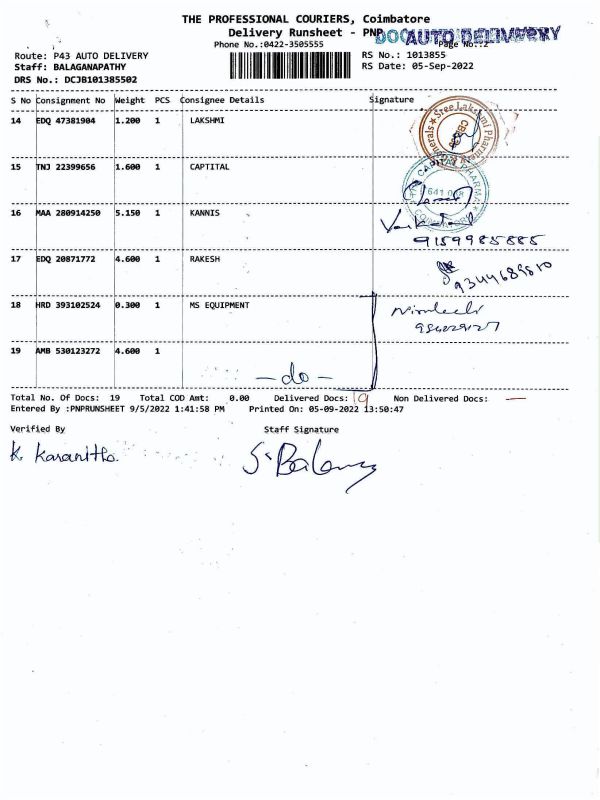 THE PROFESSIONAL COURIERS, Coimbatore
Delivery Runsheet - PNP
AUTO DELIVERY
Phone No.:0422-3505555
Page No.:2
Route: P43 AUTO DELIVERY
RS No.: 1013855
Staff: BALAGANAPATHY
RS Date: 05-Sep-2022
DRS No.: DCJB101385502
S No Consignment No Weight PCS Consignee Details Signature
14 EDQ 47381904 1.200 1 LAKSHMI
Sree Lakshmi Pharma
15 TNJ 22399656 1.600 1 CAPTITAL
CAPITAL PHARMA
641 018
16 MAA 280914250 5.150 1 KANNIS
9159985885
17 EDQ 20871772 4.600 1 RAKESH
18 HRD 393102524 0.300 1 MS EQUIPMENT
19 AMB 530123272 4.600 1
- do -
Total No. Of Docs: 19 Total COD Amt: 0.00 Delivered Docs: 19 Non Delivered Docs: —
Entered By :PNPRUNSHEET 9/5/2022 1:41:58 PM Printed On: 05-09-2022 13:50:47
Verified By Staff Signature